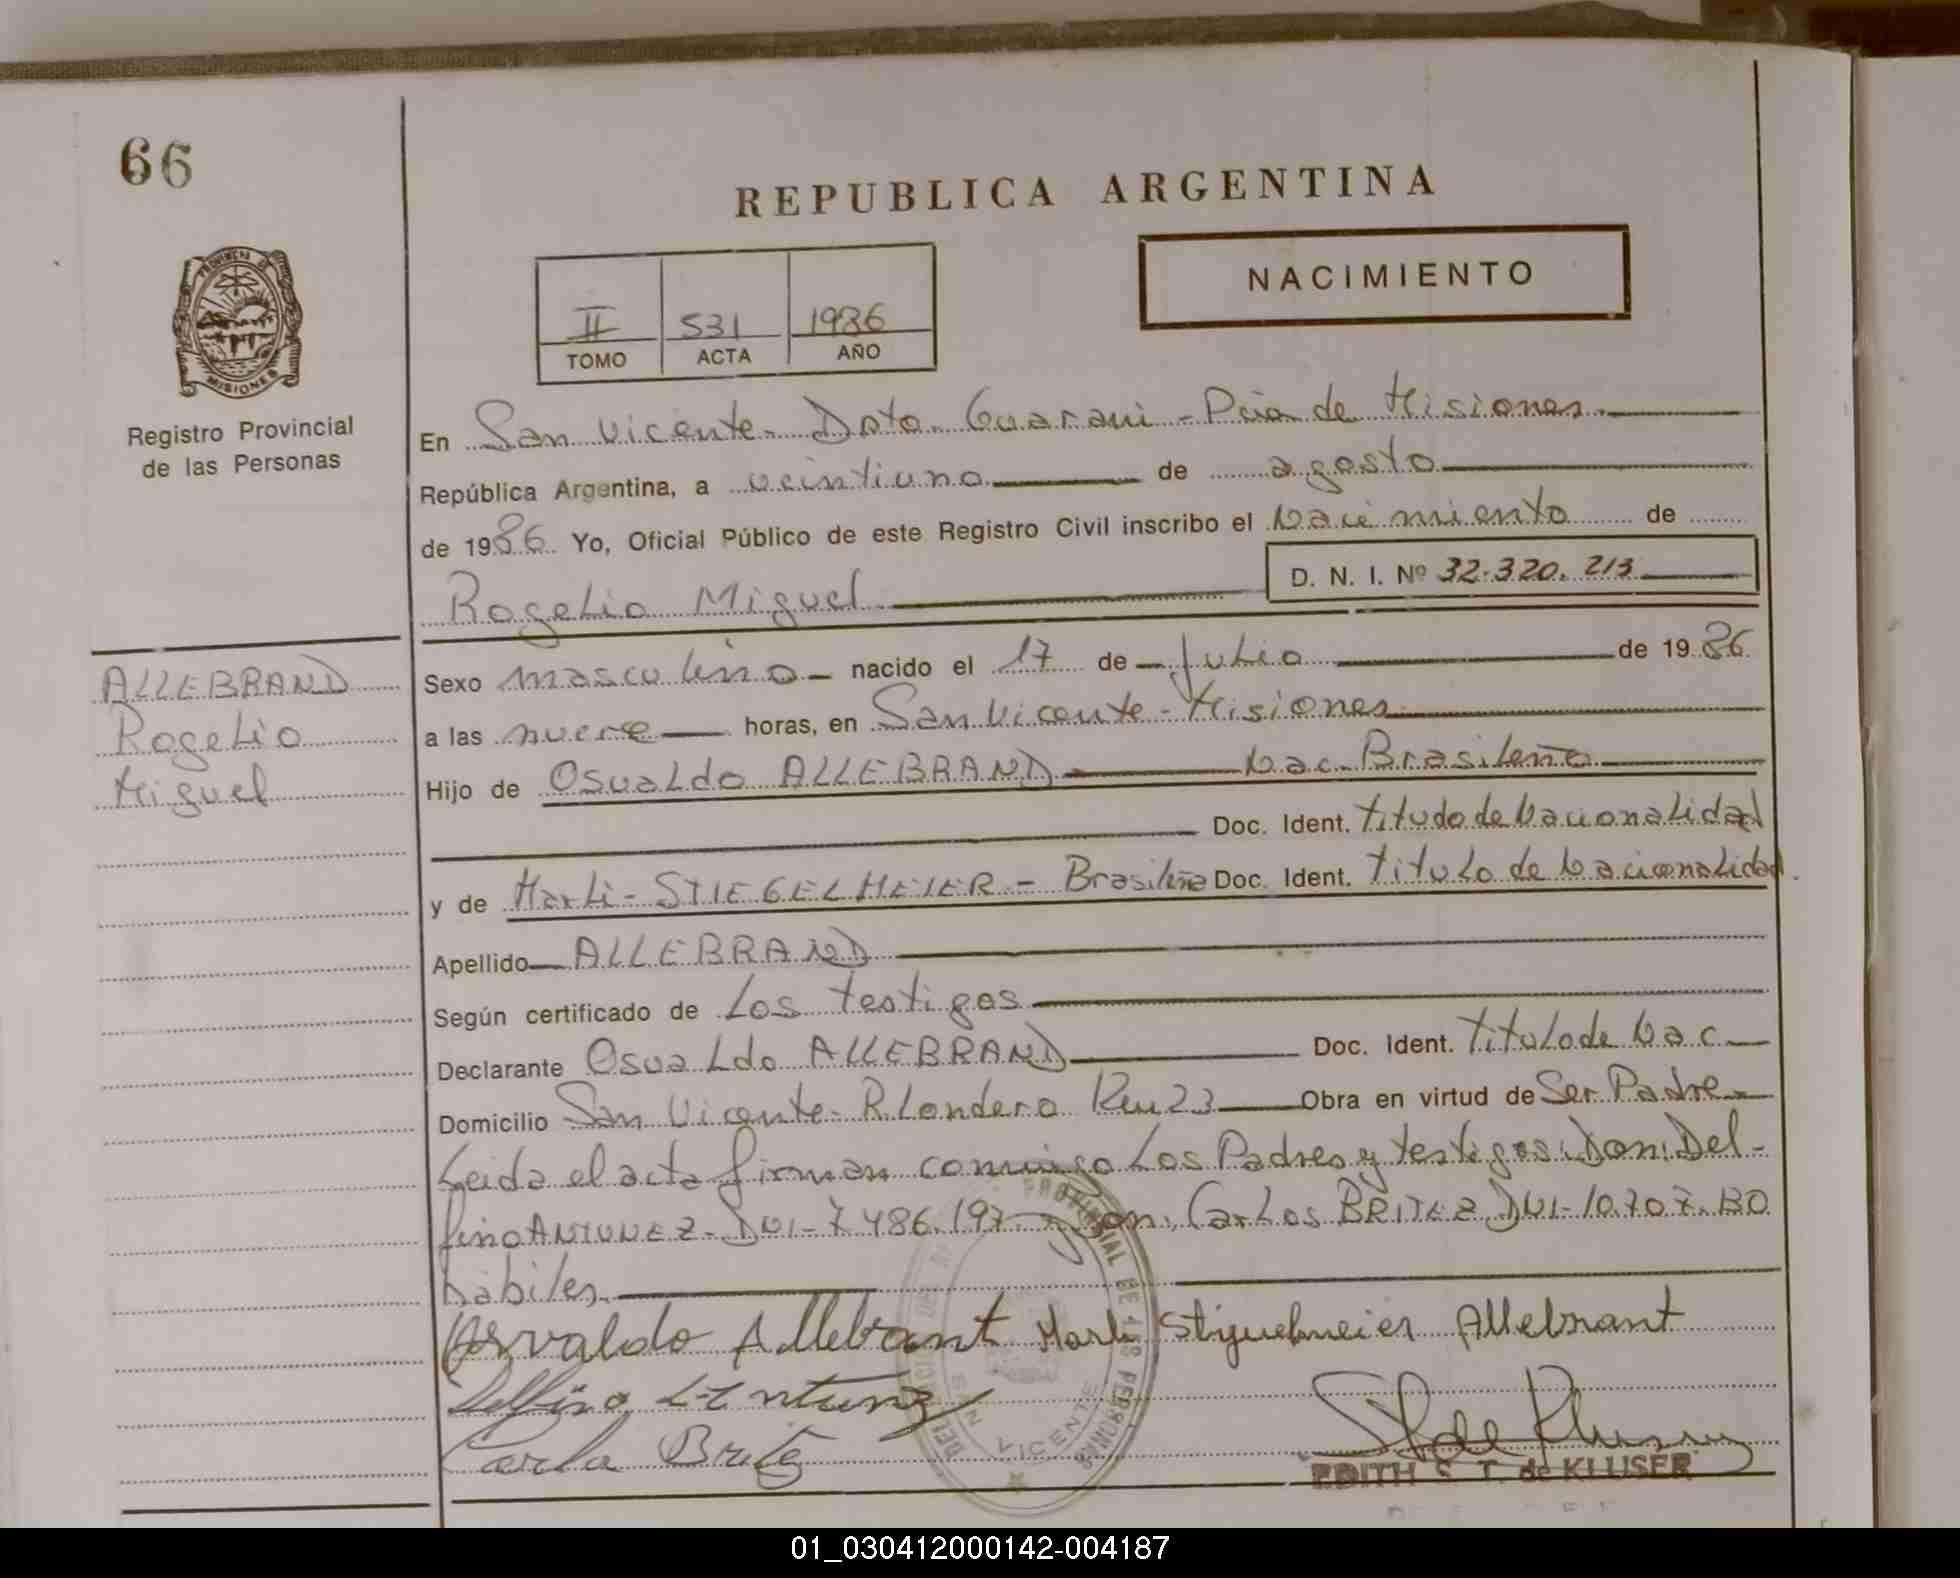 66
REPUBLICA ARGENTINA
NACIMIENTO
II 531 1986
TOMO ACTA AÑO
PROVINCIA DE
MISIONES
Registro Provincial
de las Personas
En San Vicente - Dpto. Guarani - Pcia de Misiones
República Argentina, a veintiuno de agosto
de 1986 Yo, Oficial Público de este Registro Civil inscribo el Nacimiento de
Rogelio Miguel D. N. I. Nº 32.320.213
ALLEBRAND
Rogelio
Miguel
Sexo masculino nacido el 17 de Julio de 1986
a las nueve horas, en San Vicente - Misiones
Hijo de Osvaldo ALLEBRAND Nac. Brasileño
Doc. Ident. titudo de Nacionalidad
y de Marli - STIEGELMEIER - Brasileña Doc. Ident. titulo de Nacionalidad.
Apellido ALLEBRAND
Según certificado de Los testigos
Declarante Osvaldo ALLEBRAND Doc. Ident. titulo de Nac
Domicilio San Vicente - R. Londero Km 23 Obra en virtud de Ser Padre -
Leida el acta firman conmigo Los Padres y testigos: Don: Del-
fino ANTUNEZ - DNI - 7.486.197 y Don: Carlos BRITEZ DNI - 10.707.130
hábiles.
Osvaldo Allebrant Marli Allebrant
Delfino Antunez
Brite
PROVINCIAL DE LAS PERSONAS
SAN VICENTE
EDITH S. T. de KLUSER
01_030412000142-004187